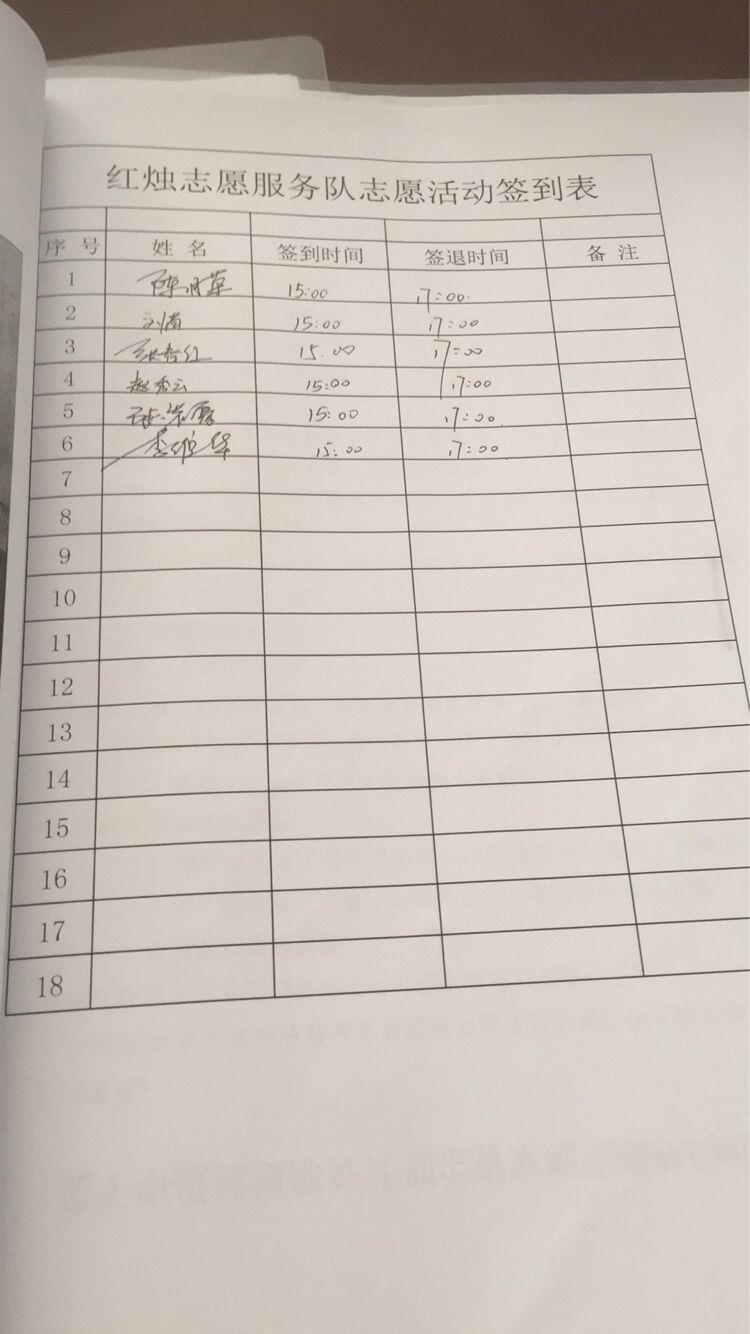 红烛志愿服务队志愿活动签到表
序号 姓名 签到时间 签退时间 备注
1 陈月草 15:00 17:00.
2 刘茜 15:00 17:00
3 15.00 17:00
4 赵秀云 15:00 17:00
5 15:00 17:00
6 李维华 15:00 17:00
7
8
9
10
11
12
13
14
15
16
17
18